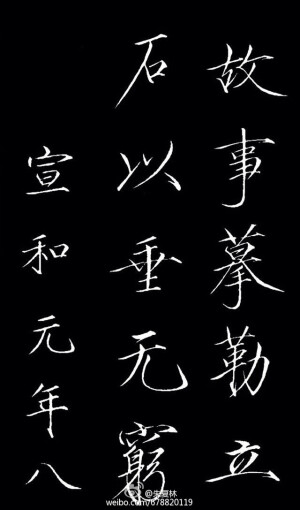 故事摹勒立
石以垂无窮
宣和元年八
@朱寶林
weibo.com/678820119